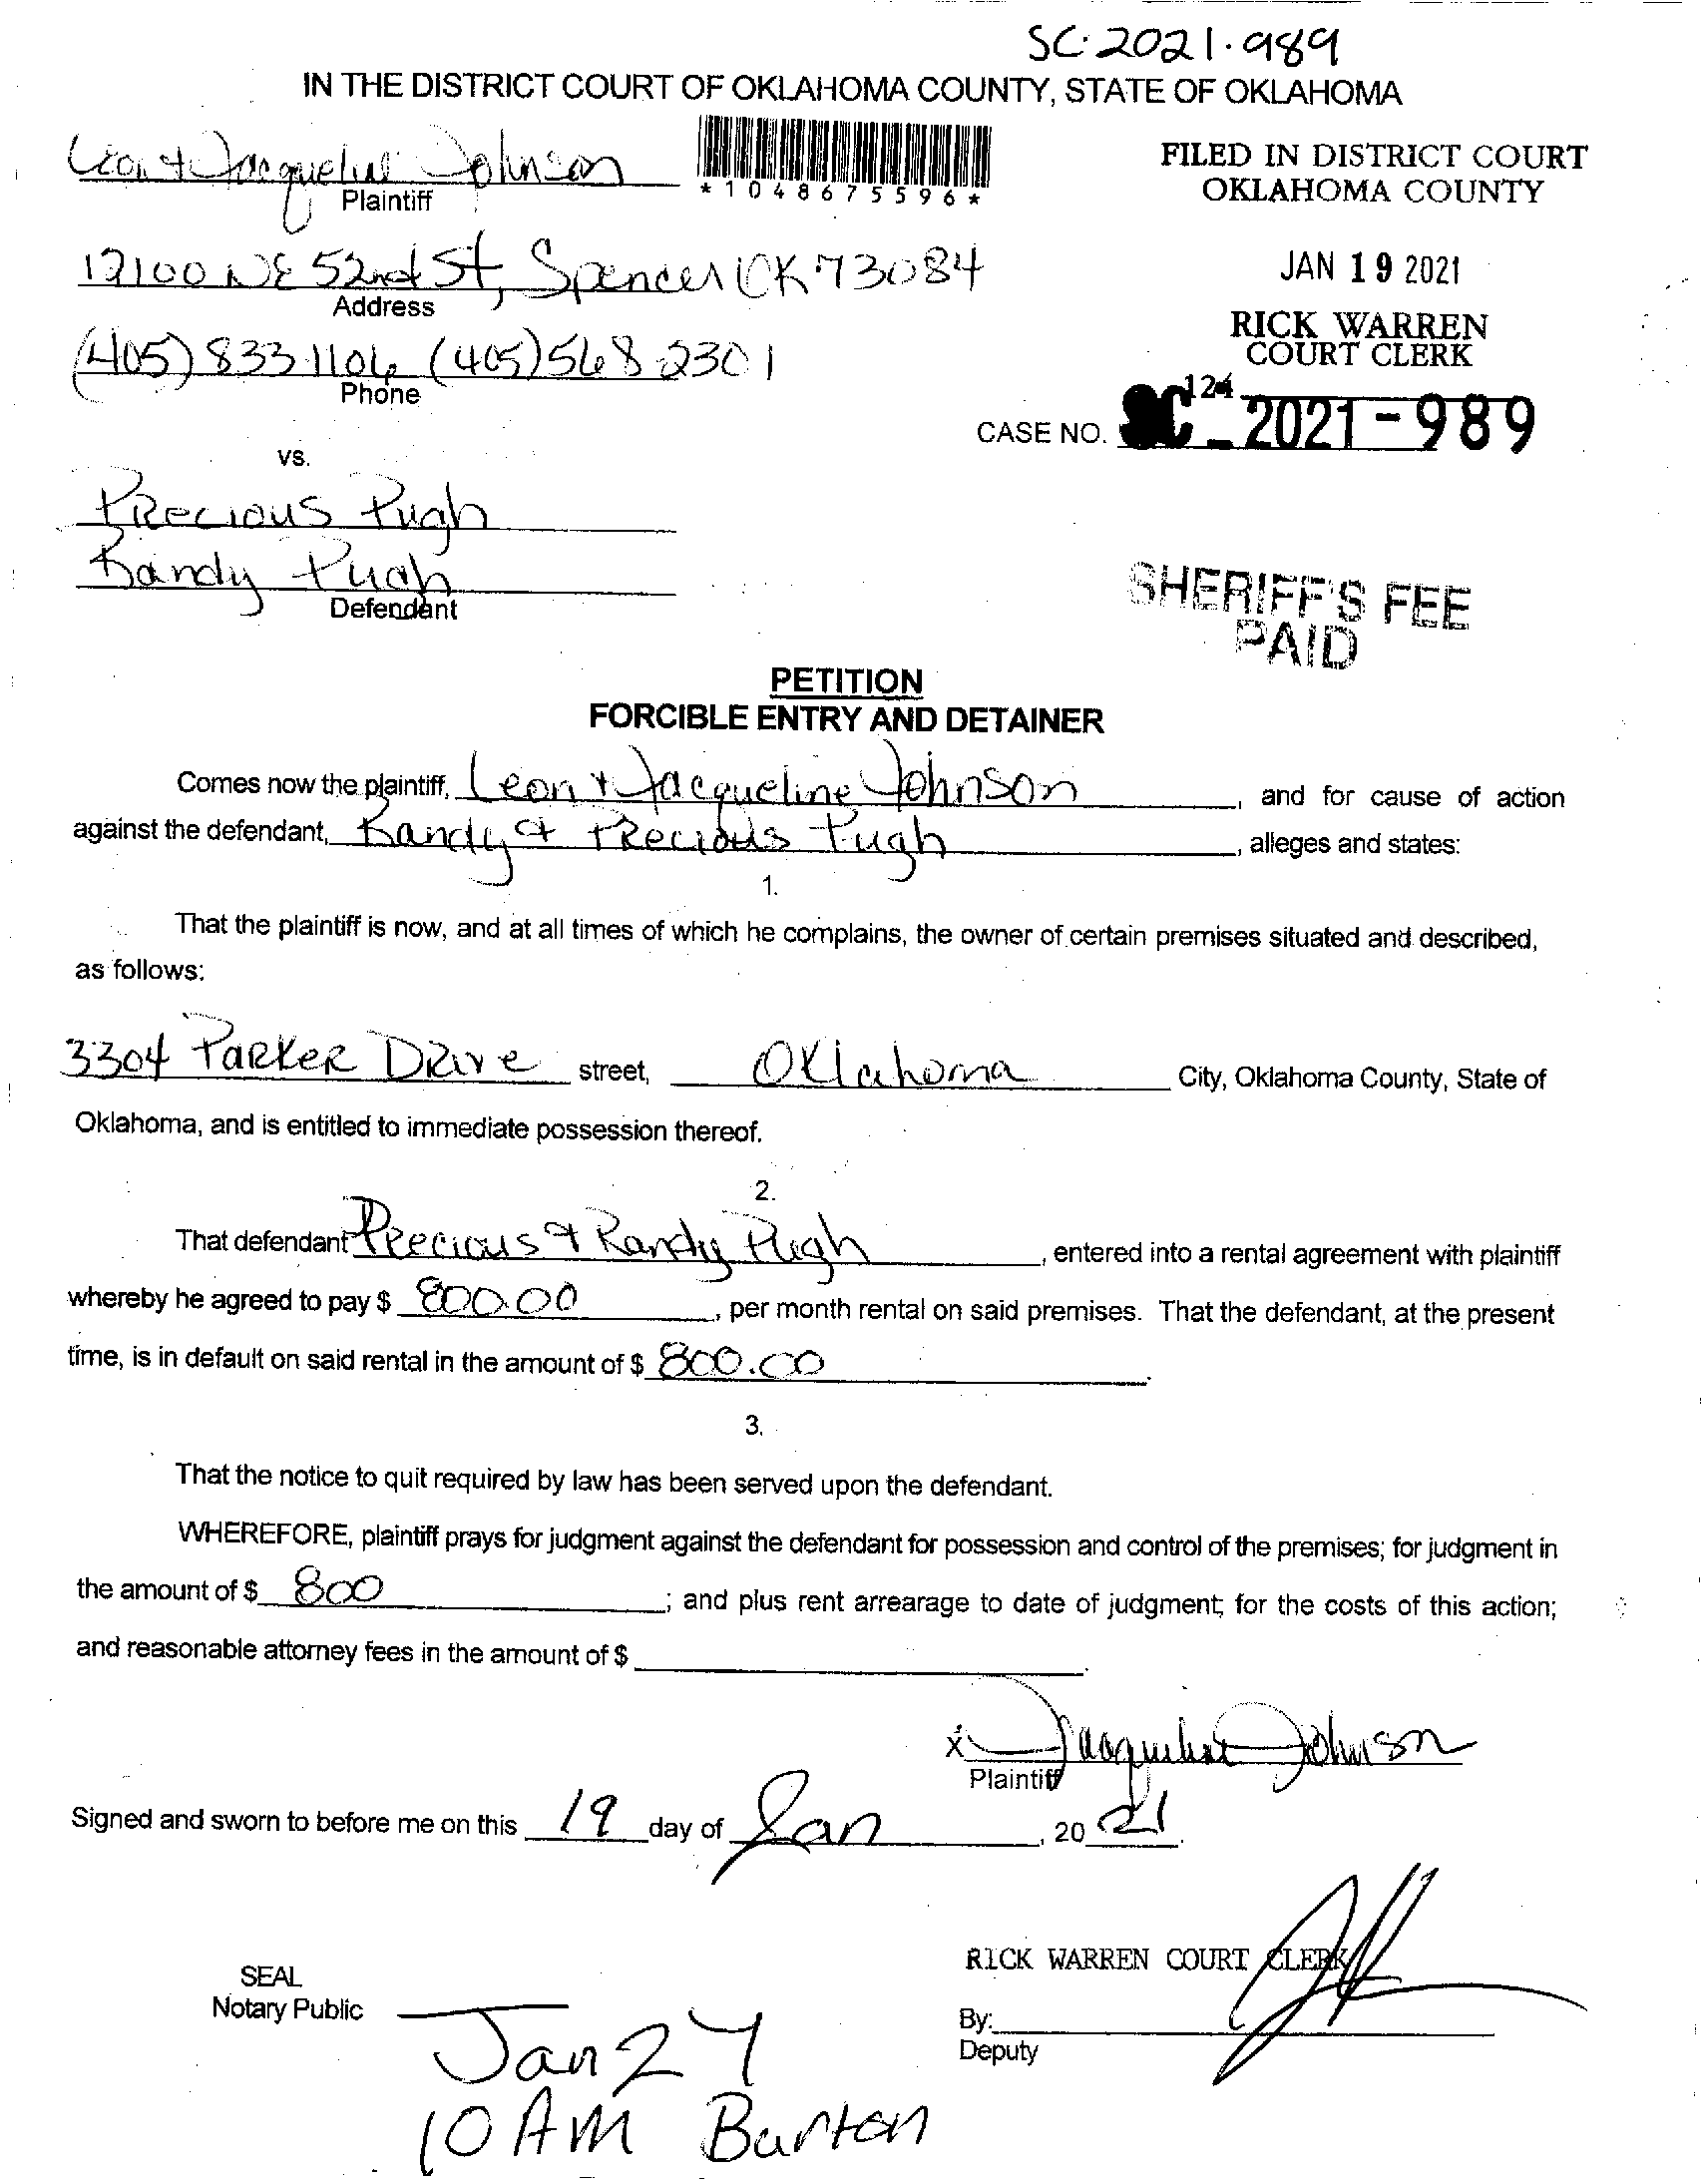 SC-2021-989
IN THE DISTRICT COURT OF OKLAHOMA COUNTY, STATE OF OKLAHOMA
Leon & Jacqueline Johnson
Plaintiff
*1048675596*
FILED IN DISTRICT COURT
OKLAHOMA COUNTY
12100 NE 52nd St, Spencer OK 73084
Address
JAN 19 2021
(405) 833-1106 (405) 568-2301
Phone
RICK WARREN
COURT CLERK
124
CASE NO. SC-2021-989
vs.
Precious Pugh
Randy Pugh
Defendant
SHERIFF'S FEE
PAID
PETITION
FORCIBLE ENTRY AND DETAINER
Comes now the plaintiff, Leon & Jacqueline Johnson, and for cause of action
against the defendant, Randy & Precious Pugh, alleges and states:
1.
That the plaintiff is now, and at all times of which he complains, the owner of certain premises situated and described,
as follows:
3304 Parker Drive street, Oklahoma City, Oklahoma County, State of
Oklahoma, and is entitled to immediate possession thereof.
2.
That defendant Precious & Randy Pugh, entered into a rental agreement with plaintiff
whereby he agreed to pay $ 800.00, per month rental on said premises. That the defendant, at the present
time, is in default on said rental in the amount of $ 800.00.
3.
That the notice to quit required by law has been served upon the defendant.
WHEREFORE, plaintiff prays for judgment against the defendant for possession and control of the premises; for judgment in
the amount of $ 800; and plus rent arrearage to date of judgment; for the costs of this action;
and reasonable attorney fees in the amount of $
X Jacqueline Johnson
Plaintiff
Signed and sworn to before me on this 19 day of Jan, 2021.
RICK WARREN COURT CLERK
SEAL
Notary Public
By:
Deputy
Jan 27
10 AM Burton